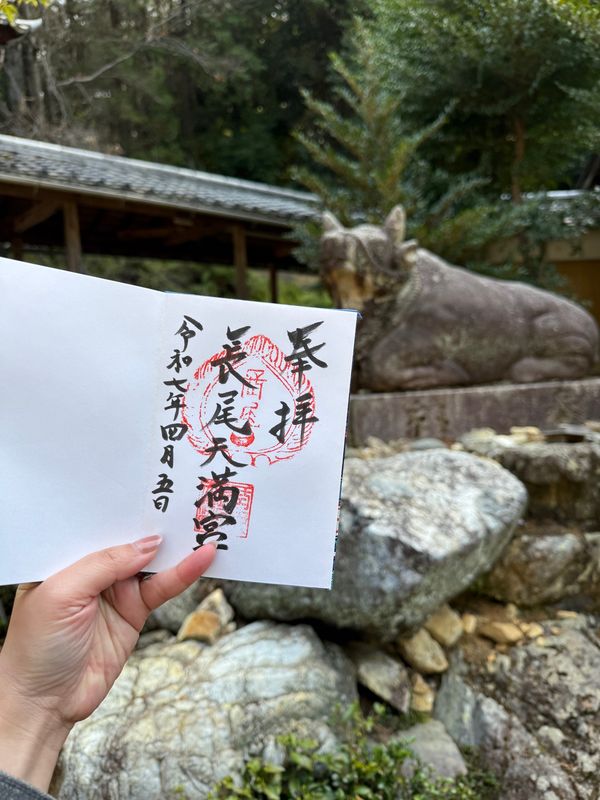 奉拝
長尾天満宮
令和七年四月五日